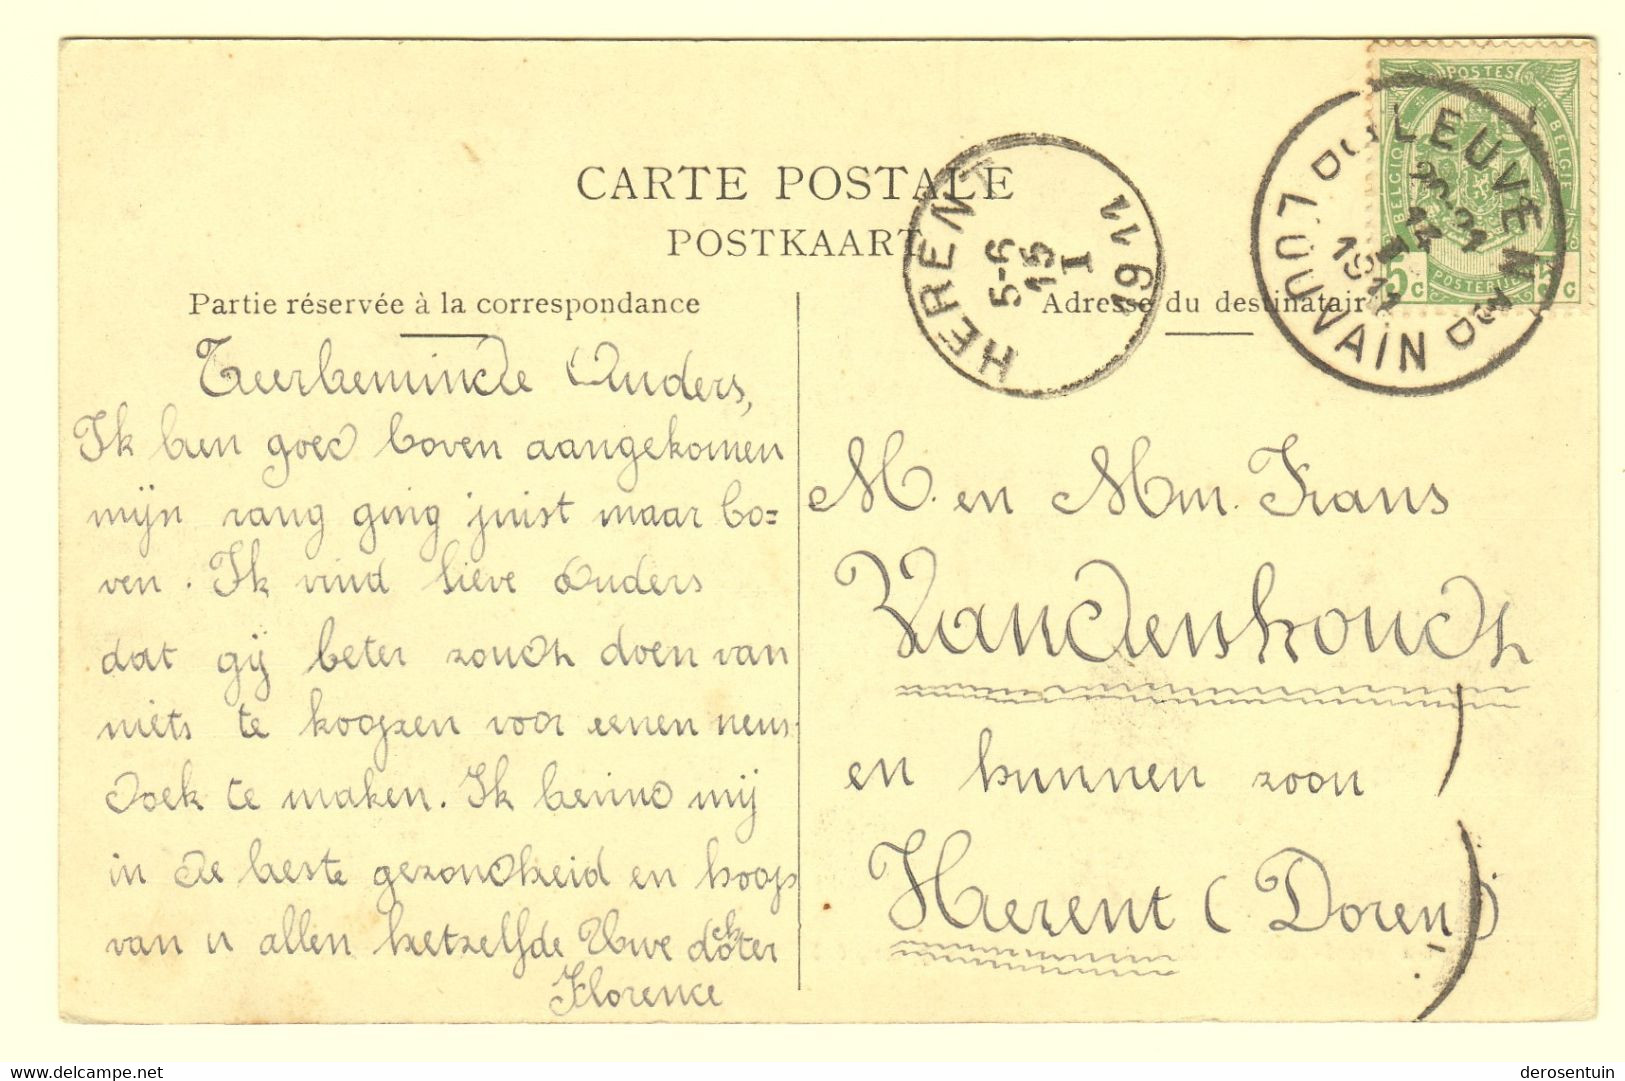 CARTE POSTALE
POSTKAART
Partie réservée à la correspondance
Adresse du destinatair
Teerbeminde Ouders,
Ik ben goed boven aangekomen
mijn rang ging juist maar bo=
ven. Ik vind lieve Ouders
dat gij beter zoudt doen van
niets te koopen voor eenen neus-
doek te maken. Ik bevind mij
in de beste gezondheid en hoop
van u allen hetzelfde Uwe dochter
Florence
M. en Mm. Frans
Vandenhoudt
en hunnen zoon
Herent (Doren)
HERENT
5-6
15
I
1911
LEUVEN
14
1911
LOUVAIN
POSTES
BELGIQUE
BELGIE
POSTERIJEN
5c
5c
delcampe.net
derosentuin